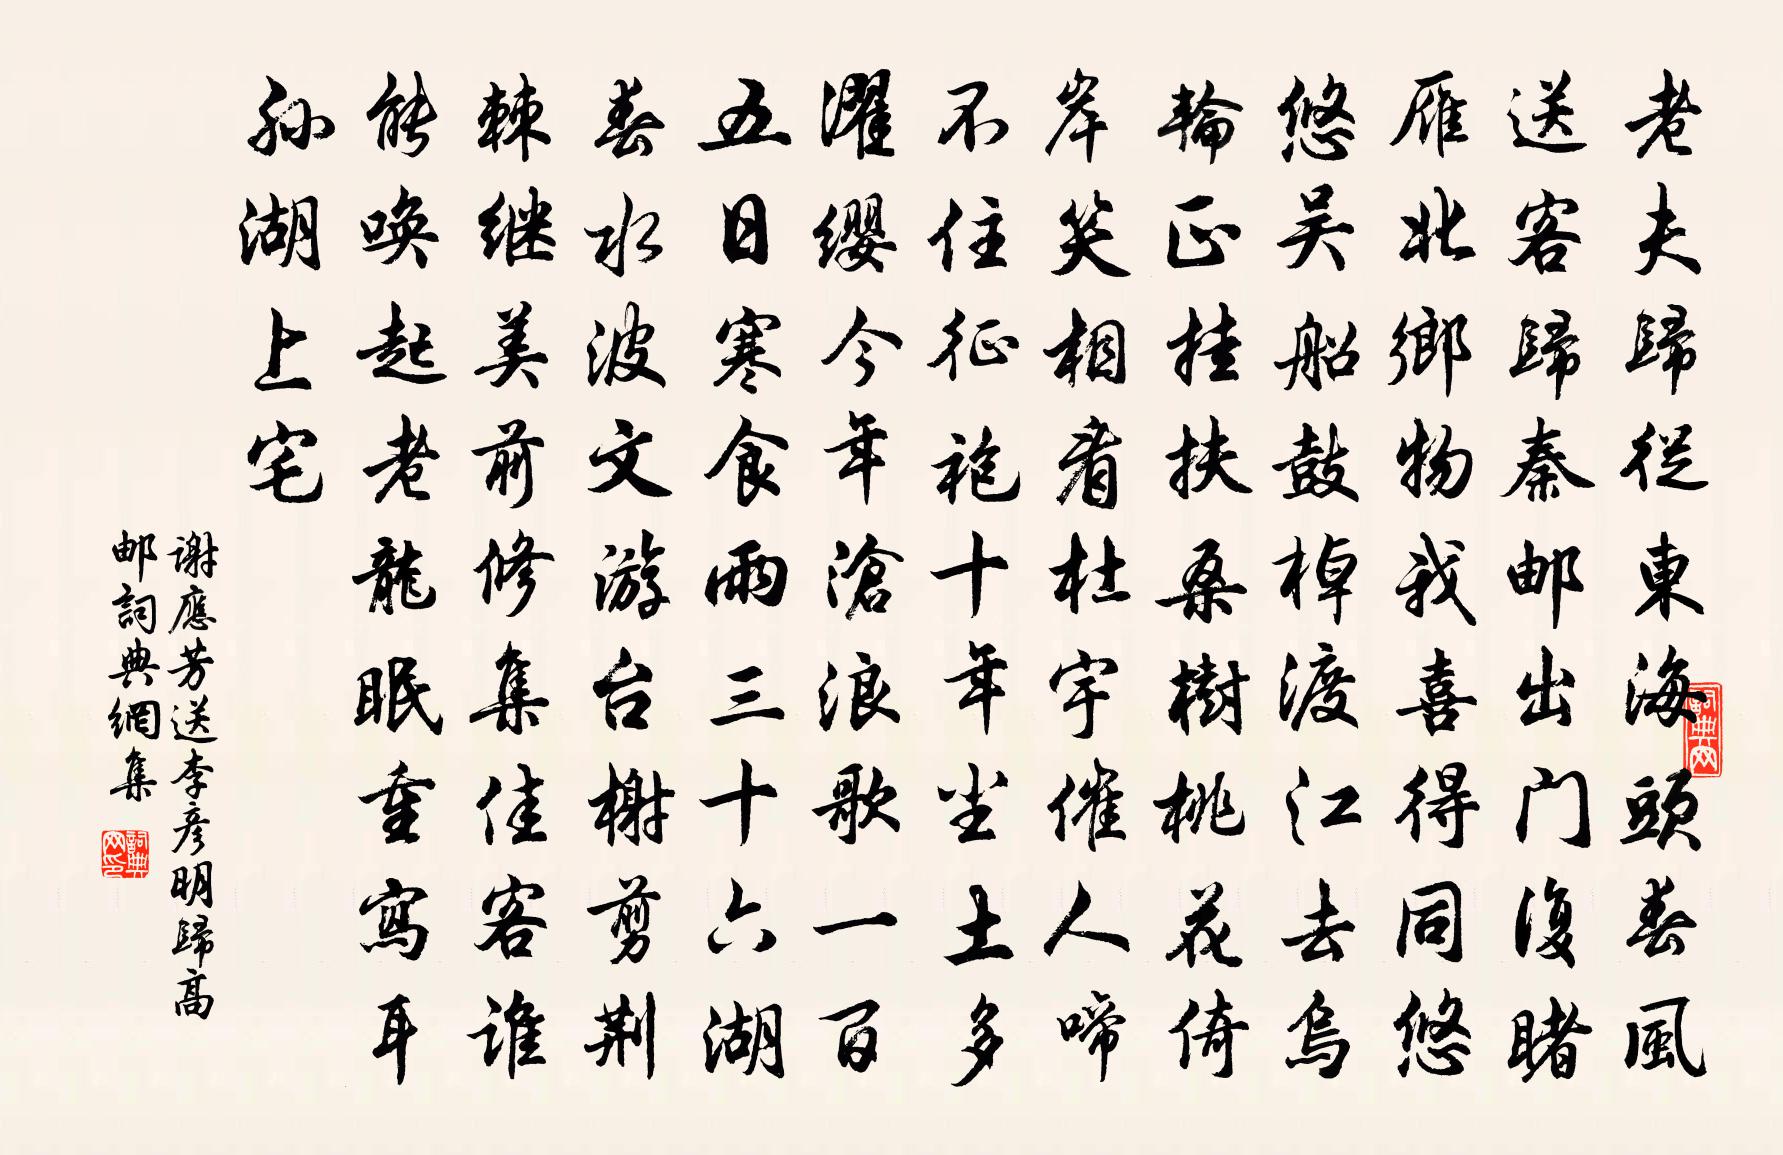 老夫歸從東海頭春風
送客歸秦邮出门復睹
雁北鄉物我喜得同悠
悠吴船鼓棹渡江去烏
輪正挂扶桑樹桃花倚
岸笑相看杜宇催人啼
不住征袍十年尘土多
濯缨今年滄浪歌一百
五日寒食雨三十六湖
春水波文游台榭剪荆
棘继美前修集佳客谁
能唤起老龍眠重寫耳
孙湖上宅
謝應芳送李彦明歸高
邮詞典網集
詞典网
詞典网印